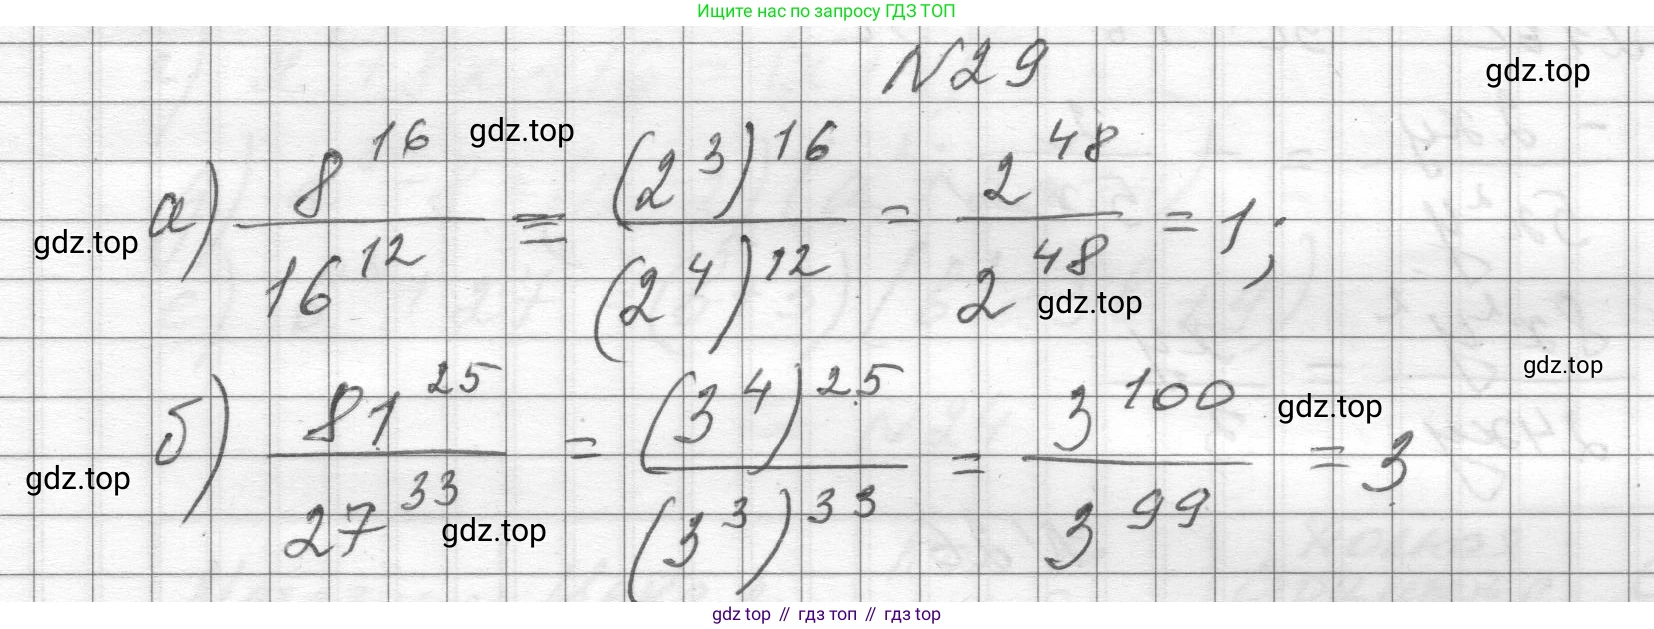 Ищите нас по запросу ГДЗ ТОП
N29
gdz.top
а) 8^16 / 16^12 = (2^3)^16 / (2^4)^12 = 2^48 / 2^48 = 1;
gdz.top
gdz.top
gdz.top
gdz.top
б) 81^25 / 27^33 = (3^4)^25 / (3^3)^33 = 3^100 / 3^99 = 3
gdz.top
gdz.top
gdz.top
gdz top // гдз топ // gdz top